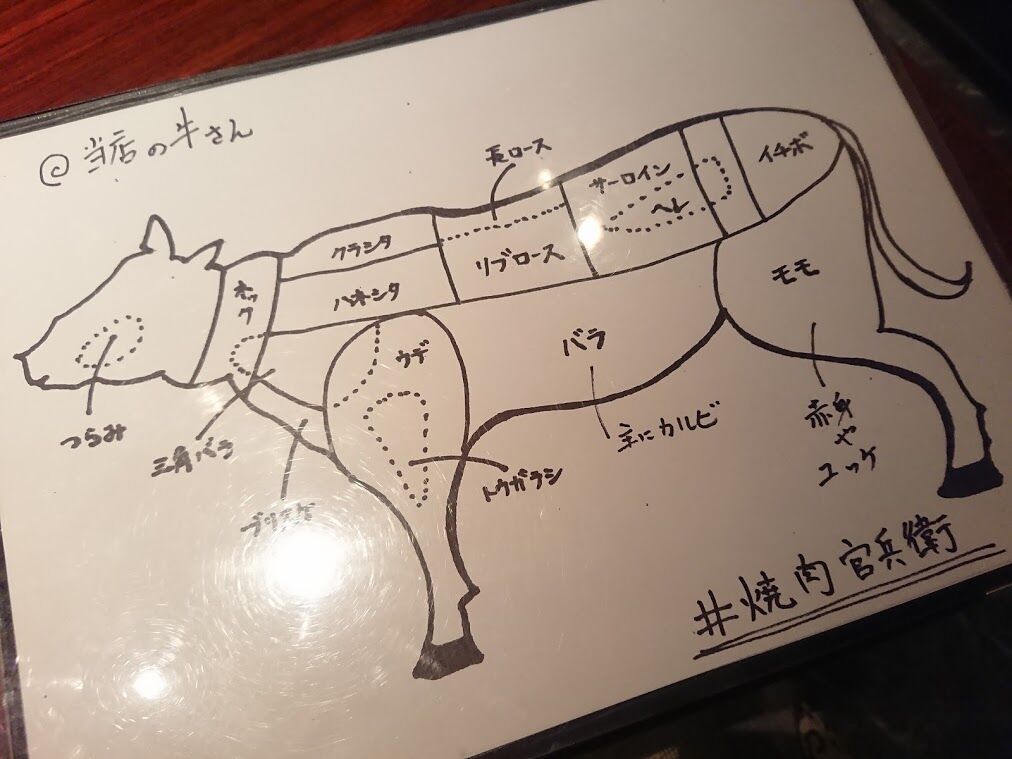 @当店の牛さん
長ロース
サーロイン
イチボ
ヘレ
クラシタ
リブロース
ネック
ハネシタ
モモ
ウデ
バラ
つらみ
三角バラ
主にカルビ
赤身
や
ユッケ
トウガラシ
ブリスケ
#焼肉官兵衛